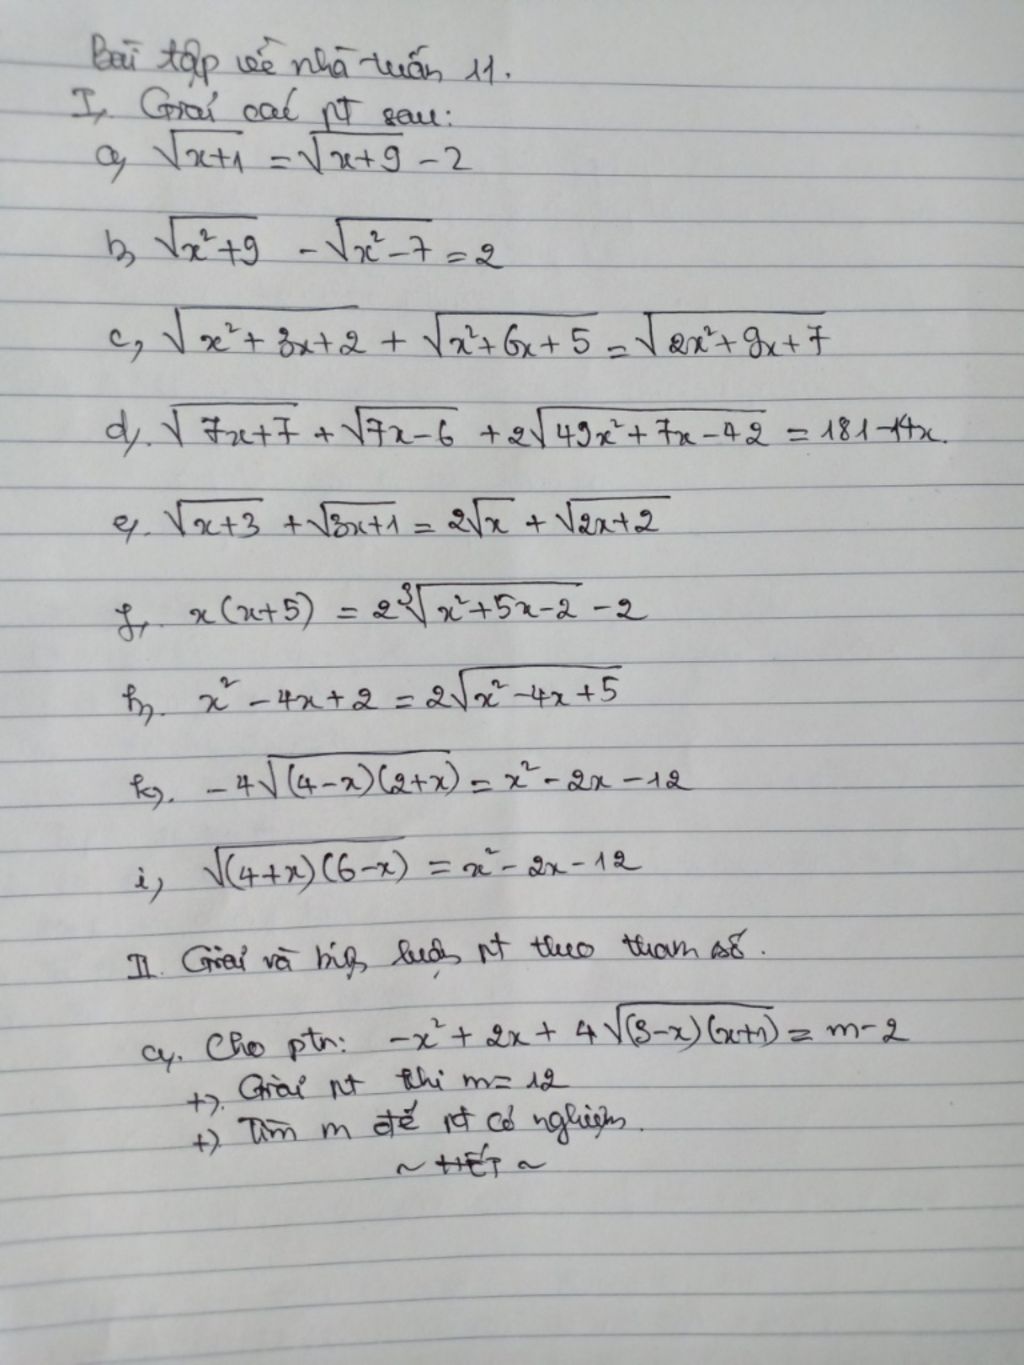 Bài tập về nhà tuần 11.
I, Giải các pt sau:
a, √(x+1) = √(x+9) - 2
b, √(x²+9) - √(x²-7) = 2
c, √(x²+3x+2) + √(x²+6x+5) = √(2x²+9x+7)
d, √(7x+7) + √(7x-6) + 2√(49x²+7x-42) = 181-14x.
e, √(x+3) + √(3x+1) = 2√x + √(2x+2)
f, x(x+5) = 2∛(x²+5x-2) - 2
h, x² - 4x + 2 = 2√(x²-4x+5)
k, -4√((4-x)(2+x)) = x² - 2x - 12
i, √((4+x)(6-x)) = x² - 2x - 12
II. Giải và biện luận pt theo tham số.
a, Cho ptr: -x² + 2x + 4√((3-x)(x+1)) = m-2
+). Giải pt khi m = 12
+) Tìm m để pt có nghiệm.
~ HẾT ~